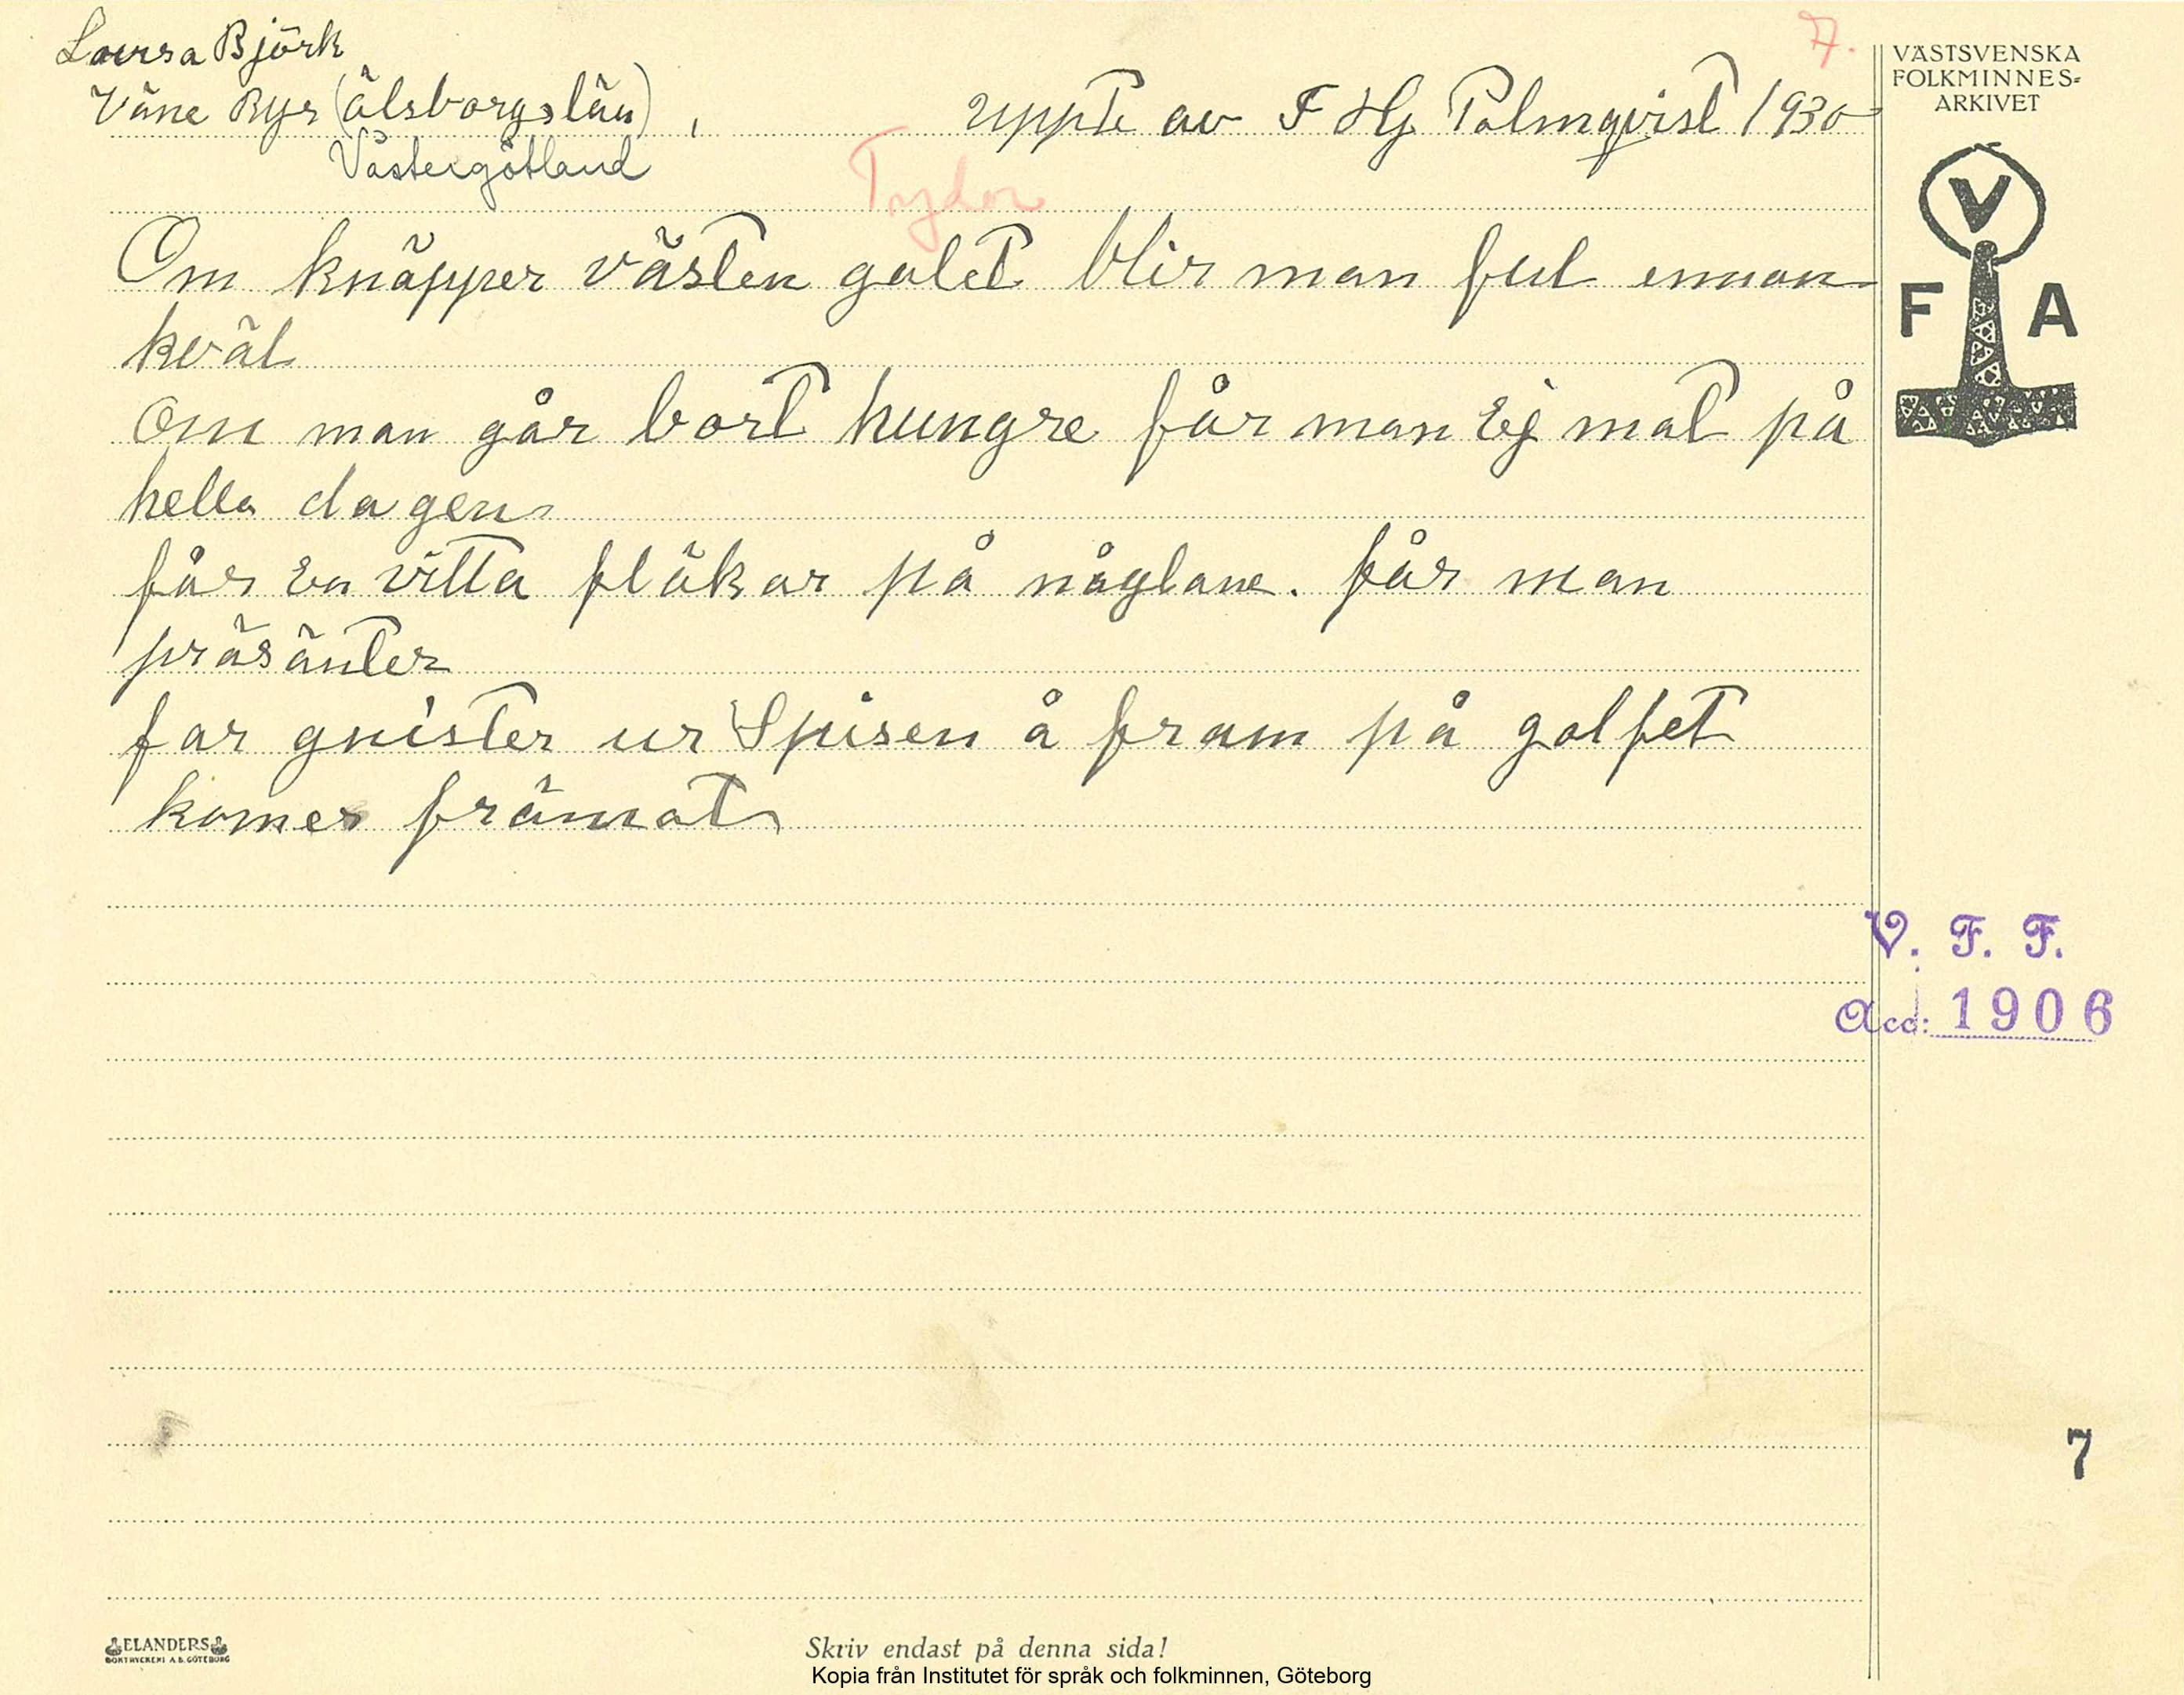 Lovisa Björk
7.
VÄSTSVENSKA
FOLKMINNES=
ARKIVET
Väne Ryr (älsborgslän), uppte av F Hj Palmqvist 1930
Västergötland
Tydor
V
F A
Om knäpper västen galet blir man ful ennan
kväl
Om man går bort hungre får man Ej mat på
hella dagen
får En vitta fläkar på någlane. får man
präsänter
far gnister ur Spisen å fram på golfet
komer främat
V. F. F.
Acc: 1906
7
ELANDERS
BOKTRYCKERI A.B. GÖTEBORG
Skriv endast på denna sida!
Kopia från Institutet för språk och folkminnen, Göteborg